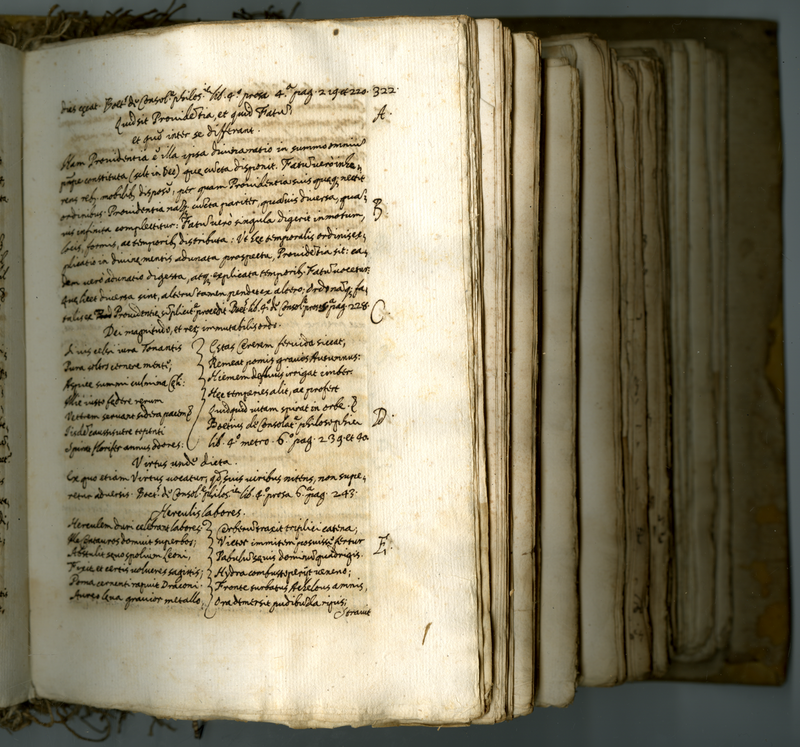 dias exeat. Boet.s de Consol.e philos.ie lib. 4.o prosa 4.a pag. 219 et 220. 322.
Quid sit Providẽtia, et quid Fatũ
et quõ inter se differant.
A.
Nam Providentia ẽ illa ipsa divina ratio in summo omniũ
prĩpe constituta (scilt in Deo) que cũcta disponit. Fatũ vero inhe,,
rens reb9 mobilib9 dispositio, per quam Providentia suis quaeq nectit
ordinibus. Providentia naq cũcta pariter, quãvis diversa, quã,,
B.
vis infinita complectitur: Fatũ vero singula digerit in motum,
locis, formis, ac temporib9 distributa: Ut hec temporalis ordinis ex,,
plicatio in divine mentis adunata prospectu, Providẽtia sit: ea,,
dem vero adunatio digesta, atq explicata temporib9 Fatũ vocetur.
Que licet diversa sint, alterũ tamen pendet ex altero; Ordo naq fa,,
talis ex Providentie simplicite procedit. Boet.s lib. 4.o de Consol. prosa 6.a pag. 228.
C.
Dei magnitudo, et reꝝ immutabilis ordo.
Si vis celsi iura Tonantis
Pura solers cernere mente,
Aspice summi culmina Celi:
Illic iusto federe rerum
Veterem servant sidera pacem &
Sic de causis vere tepenti
Spirat florifer annus odores.
Estas Cererem fervida siccat,
Remeat pomis gravis Autumnus:
Hiemem defluus irrigat imber.
Hec temperies alit, ac profert
Quidquid vitam spirat in orbe. &
D.
Boetius de Consolat.e philosophiae
lib. 4.o metro. 6.o pag. 239. et 40.
Virtus unde dicta.
Ex quo etiam Virtus vocatur, qd suis viribus nitens, non supe,,
retur adversis. Boet.s de Consol.e philos.ie lib. 4.o prosa 6.a pag. 243.
Herculis labores.
Herculem duri celebrant labores:
Ille Centauros domuit superbos;
Abstulit sevo spolium Leoni,
Fixit et certis volucres sagittis;
Poma cernenti rapuit Draconi
Aureo leva gravior metallo;
Cerberũ traxit triplici catena;
E.
Victor immitem posuisse fertur
Pabulũ sevis dominũ quadrigis.
Hydra combusto periit veneno;
Fronte turbatus Achelous amnis,
Ora demersit pudibũda ripis;
Stravit